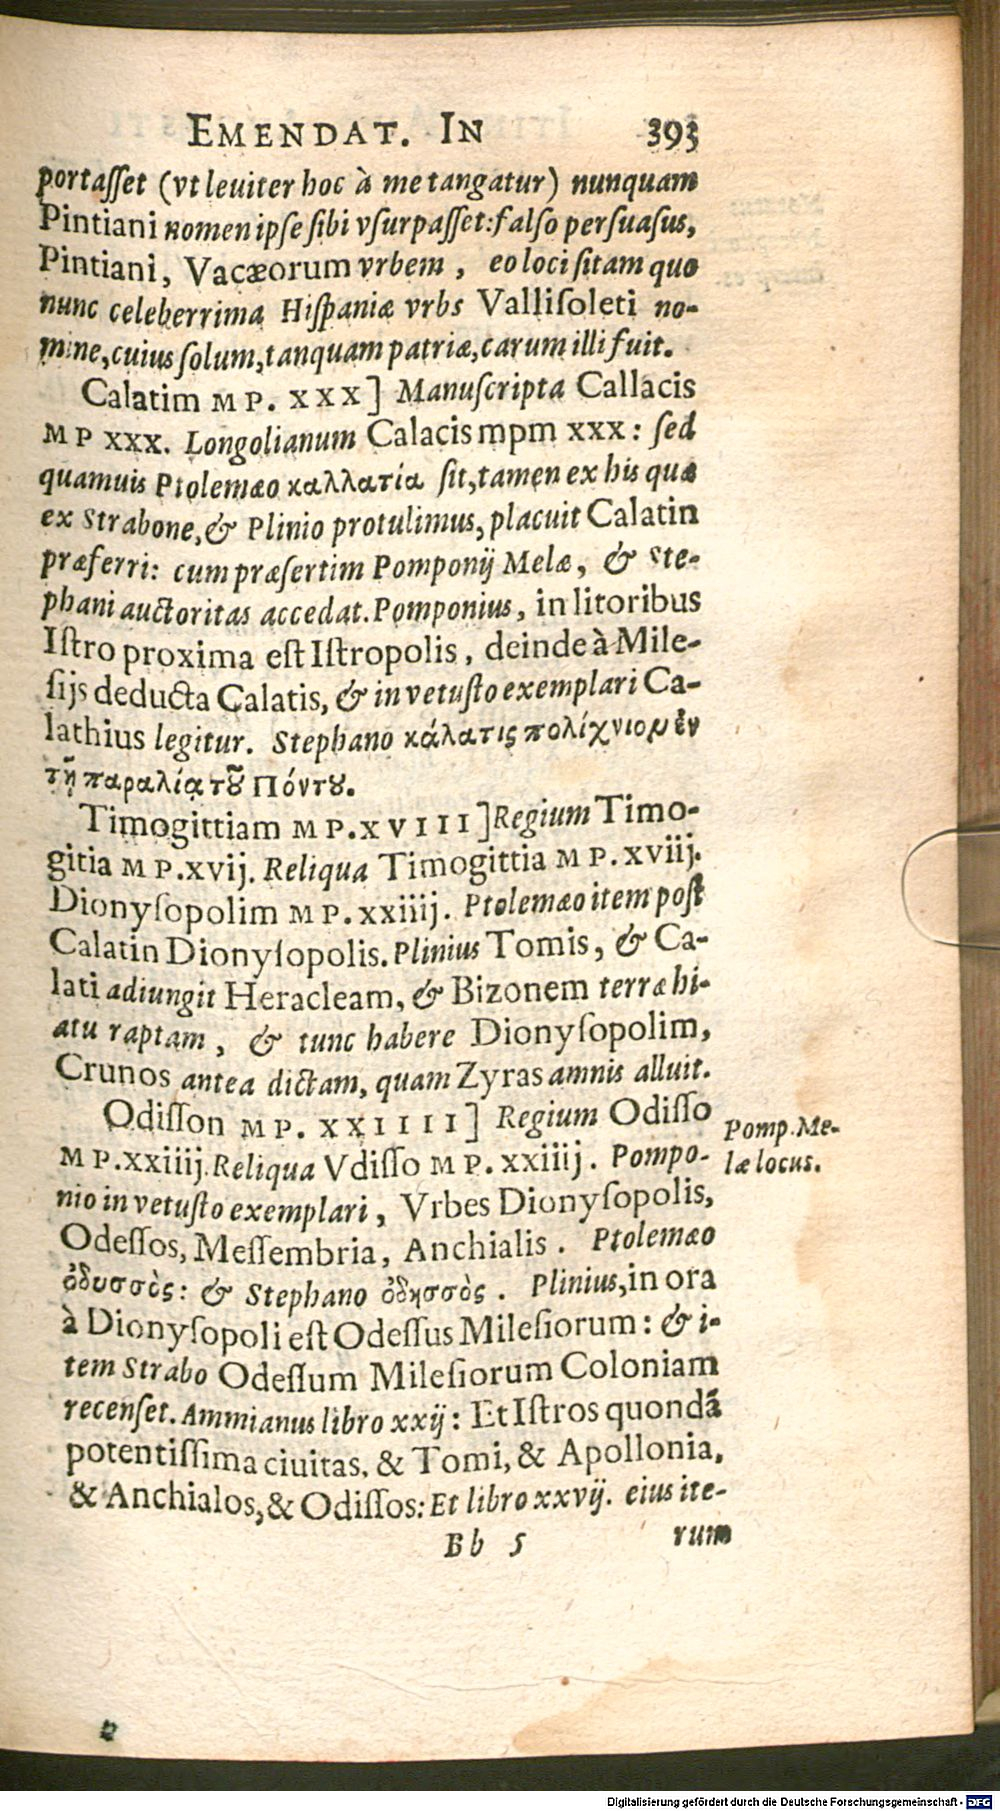 EMENDAT. IN 393
portaſſet (vt leuiter hoc à me tangatur) nunquam
Pintiani nomen ipſe ſibi vſurpaſſet: falſo perſuaſus,
Pintiani, Vacæorum vrbem, eo loci ſitam quo
nunc celeberrima Hiſpaniæ vrbs Valliſoleti no-
mine, cuius ſolum, tanquam patriæ, carum illi fuit.
Calatim MP. XXX] Manuſcripta Callacis
MP XXX. Longolianum Calacis mpm xxx: ſed
quamuis Ptolemæo καλλατία ſit, tamen ex his quæ
ex Strabone, & Plinio protulimus, placuit Calatin
præferri: cum præſertim Pomponij Melæ, & Ste-
phani auctoritas accedat. Pomponius, in litoribus
Iſtro proxima eſt Iſtropolis, deinde à Mile-
ſijs deducta Calatis, & in vetuſto exemplari Ca-
lathius legitur. Stephano κάλατις πολίχνιομ ἐν
τῇ παραλίᾳ τȣ͂ Πόντȣ.
Timogittiam MP. XVIII] Regium Timo-
gitia MP. xvij. Reliqua Timogittia MP. xviij.
Dionyſopolim MP. xxiiij. Ptolemæo item poſt
Calatin Dionyſopolis. Plinius Tomis, & Ca-
lati adiungit Heracleam, & Bizonem terræ hi-
atu raptam, & tunc habere Dionyſopolim,
Crunos antea dictam, quam Zyras amnis alluit.
Odiſſon MP. XXIIII] Regium Odiſſo
MP. xxiiij. Reliqua Vdiſſo MP. xxiiij. Pompo-
nio in vetuſto exemplari, Vrbes Dionyſopolis,
Odeſſos, Meſſembria, Anchialis. Ptolemæo
ὀδυσσὸς: & Stephano ὀδησσὸς. Plinius, in ora
à Dionyſopoli eſt Odeſſus Mileſiorum: & i-
tem Strabo Odeſſum Mileſiorum Coloniam
recenſet. Ammianus libro xxij: Et Iſtros quondã
potentiſſima ciuitas, & Tomi, & Apollonia,
& Anchialos, & Odiſſos: Et libro xxvij. eius ite-
Bb 5 rum
Pomp. Me-
læ locus.
Digitalisierung gefördert durch die Deutsche Forschungsgemeinschaft - DFG